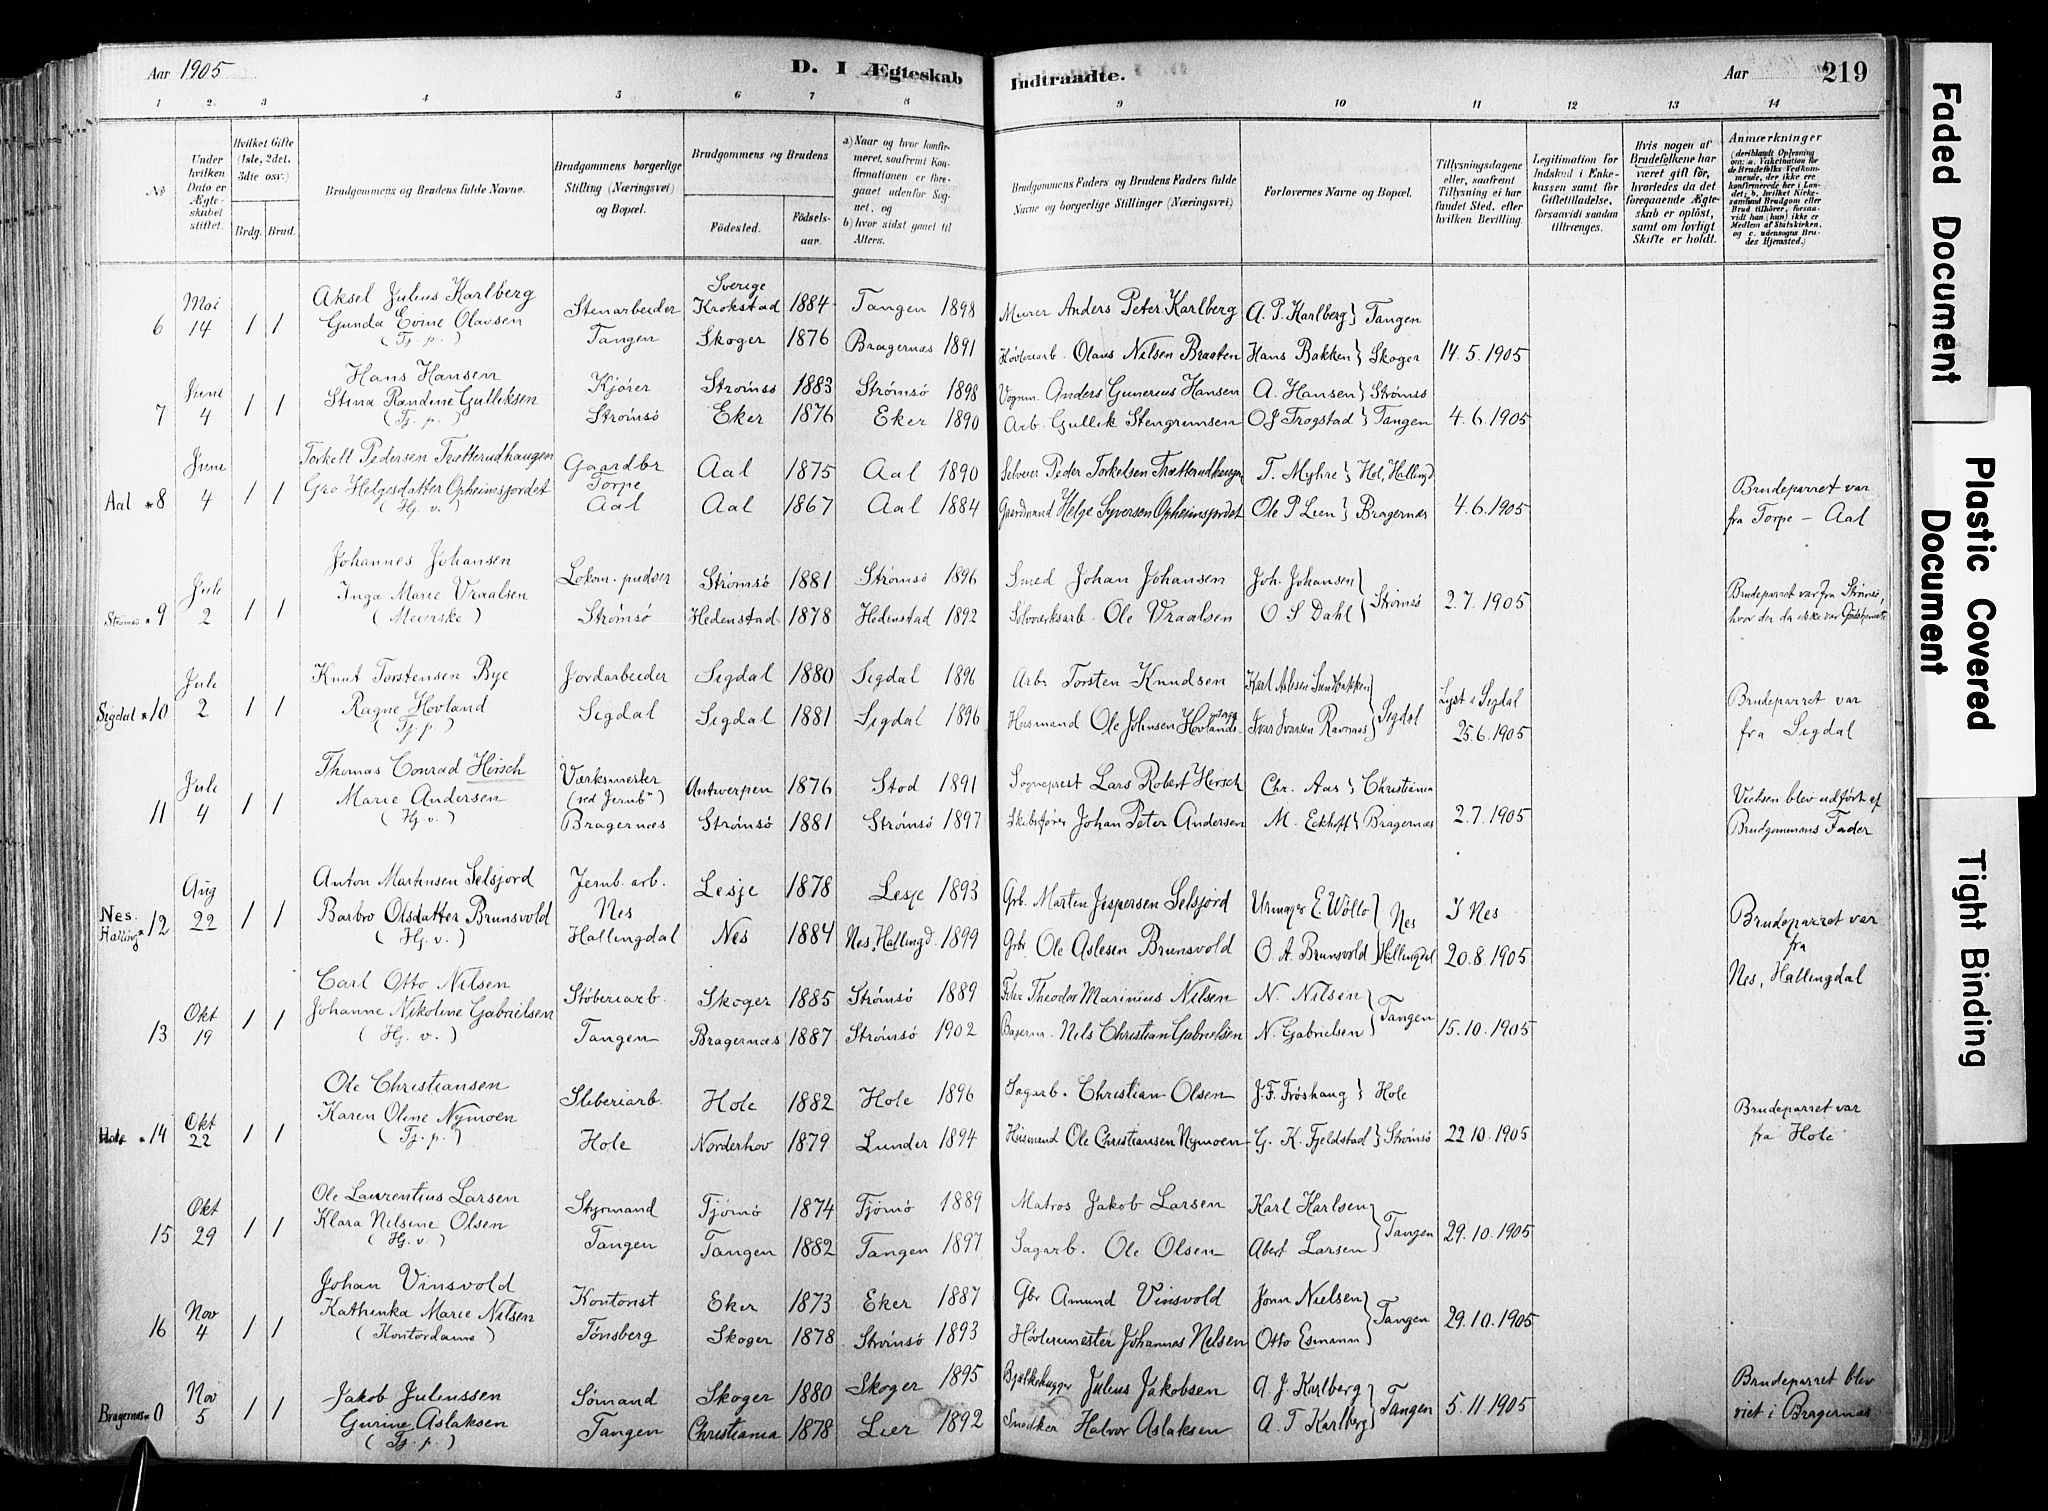 Aar 1905
D. I Ægteskab Indtraadte.
Aar 219
1 2. 3 4 5 6 7 8 9 10 11 12 13 14
No
Under hvilken Dato er Ægteskabet stiftet.
Hvilket Gifte (1ste, 2det, 3die osv.)
Brdg. Brud.
Brudgommens og Brudens fulde Navne.
Brudgommens borgerlige Stilling (Næringsvei) og Bopæl.
Brudgommens og Brudens
Födested. Födselsaar.
a) Naar og hvor konfirmeret, saafremt Konfirmationen er foregaaet udenfor Sognet, og
b) hvor sidst gaaet til Alters.
Brudgommens Faders og Brudens Faders fulde Navne og borgerlige Stillinger (Næringsvei)
Forlovernes Navne og Bopæl.
Tillysningsdagene eller, saafremt Tillysning ei har fundet Sted, efter hvilken Bevilling.
Legitimation for Indskud i Enkekassen samt for Giftetilladelse, forsaavidt saadan tiltrænges.
Hvis nogen af Brudefolkene har været gift för, hvorledes da det foregaaende Ægteskab er oplöst, samt om lovligt Skifte er holdt.
Anmærkninger
(deriblandt Oplysning om: a. Vakcination for de Brudefolks Vedkommende, der ikke ere konfirmerede her i Landet; b. hvilket Kirkesamfund Brudgom eller Brud tilhörer, forsaavidt han (hun) ikke er Medlem af Statskirken, og c. udensogns Brudes Hjemsted.)
Mai Aksel Julius Karlberg Stenarbeider Sverige Krokstad 1884 Tangen 1898 Murer Anders Peter Karlberg A. P. Karlberg } Tangen
6 14 1 1 Gunda Evine Olausen (Tj. p.) Tangen Skoger 1876 Bragernæs 1891 Høvleriarb. Olaus Nilsen Braaten Hans Bakken } Skoger 14.5.1905
Juni Hans Hansen Kjører Strømsø 1883 Strømsø 1898 Vognm. Anders Gunerius Hansen A. Hansen } Strømsø
7 4 1 1 Stina Randine Gulliksen (Tj. p.) Strømsø Eker 1876 Eker 1890 Arb. Gullik Stengrimsen O J Trogstad } Tangen 4.6.1905
Juni Torkell Pedersen Trætterudhaugen Gaardbr Torpe Aal 1875 Aal 1890 Selveier Peder Torkelsen T. Myhre } Hol, Hallingd
Aal * 8 4 1 1 Gro Helgesdatter Opheimsjordet (Hj. v.) Aal Aal 1867 Aal 1884 Gaardmand Helge Syversen Opheimsjordet Ole P Lien } Bragernæs 4.6.1905 Brudeparret var fra Torpe – Aal
Juli Johannes Johansen Lokom. pudser Strømsø 1881 Strømsø 1896 Smed Johan Johansen Joh. Johansen }
Strømsø * 9 2 1 1 Inga Marie Vraalsen (Meierske) Strømsø Hedenstad 1878 Hedenstad 1892 Sølvværksarb. Ole Vraalsen O S Dahl } Strømsø 2.7.1905 Brudeparret var fra Strømsø, hvor der da ikke var Gudstjeneste
Juli Knut Torstensen Bye Jordarbeider Sigdal 1880 Sigdal 1896 Arb. Torsten Knudsen Karl Aslesen Sundbakken }
Sigdal * 10 2 1 1 Ragne Hovland (Tj. p.) Sigdal Sigdal 1881 Sigdal 1896 Husmand Ole Johnsen Hovlands Ivar Ivarsen Ravnaas } Sigdal Lyst i Sigdal 25.6.1905 Brudeparret var fra Sigdal
Juli Thomas Conrad Hirsch Værksmester (ved Jernb) Antwerpen 1876 Stod 1891 Sogneprest Lars Robert Hirsch Chr. Aas } Christiania
11 4 1 1 Marie Andersen (Hj. v.) Bragernæs Strømsø 1881 Strømsø 1897 Skibsfører Johan Peter Andersen M. Eckhoff } Bragernæs 2.7.1905 Vielsen blev udført af Brudgommens Fader
Aug Anton Martinsen Selsjord Jernb. arb. Lesje 1878 Lesje 1893 Grb. Martin Jespersen Selsjord Urmager E. Wöllo } Nes I Nes
Nes. Halling * 12 22 1 1 Barbro Olsdatter Brunsvold (Hj. v.) Nes Hallingdal Nes 1884 Nes, Hallingd. 1899 Grbr. Ole Aslesen Brunsvold O. A. Brunsvold } Hallingdal 20.8.1905 Brudeparret var fra Nes, Hallingdal
Okt Carl Otto Nilsen Støberiarb. Skoger 1885 Strømsø 1889 Theodor Marinius Nilsen N. Nilsen }
13 19 1 1 Johanne Nikoline Gabrielsen (Hj. v.) Tangen Bragernæs 1887 Strømsø 1902 Nils Christian Gabrielsen N. Gabrielsen } Tangen 15.10.1905
Okt Ole Christiansen Sliberiarb. Hole 1882 Hole 1896 Sagarb. Christian Olsen J. F. Frøshaug } Hole
Hole * 14 22 1 1 Karen Oline Nymoen (Tj. p.) Hole Norderhov 1879 Lunder 1894 Husmand Ole Christiansen Nymoen G. K. Fjeldstad } Strømsø 22.10.1905 Brudeparret var fra Hole
Okt Ole Laurentius Larsen Styrmand Tjømø 1874 Tjømø 1889 Matros Jakob Larsen Karl Karlsen }
15 29 1 1 Klara Nilsine Olsen (Hj. v) Tangen Tangen 1882 Tangen 1897 Sagarb. Ole Olsen Abert Larsen } Tangen 29.10.1905
Nov Johan Vinsvold Kontorist Eker 1873 Eker 1887 Gbr Amund Vinsvold Jonn Nielsen }
16 4 1 1 Kathinka Marie Nilsen (Kontordame) Tønsberg Skoger 1878 Strømsø 1893 Høvlerimester Johannes Nilsen Otto Esmann } Tangen 29.10.1905
Nov Jakob Juliussen Sømand Skoger 1880 Skoger 1895 Bjælkehugger Julius Jakobsen A. J. Karlberg }
Bragernæs * 0 5 1 1 Gurine Aslaksen (Tj. p.) Tangen Christiania 1878 Lier 1892 Snedker Halvor Aslaksen A. T Karlberg } Tangen 5.11.1905 Brudeparret blev viet i Bragernæs
Faded Document
Plastic Covered Document
Tight Binding